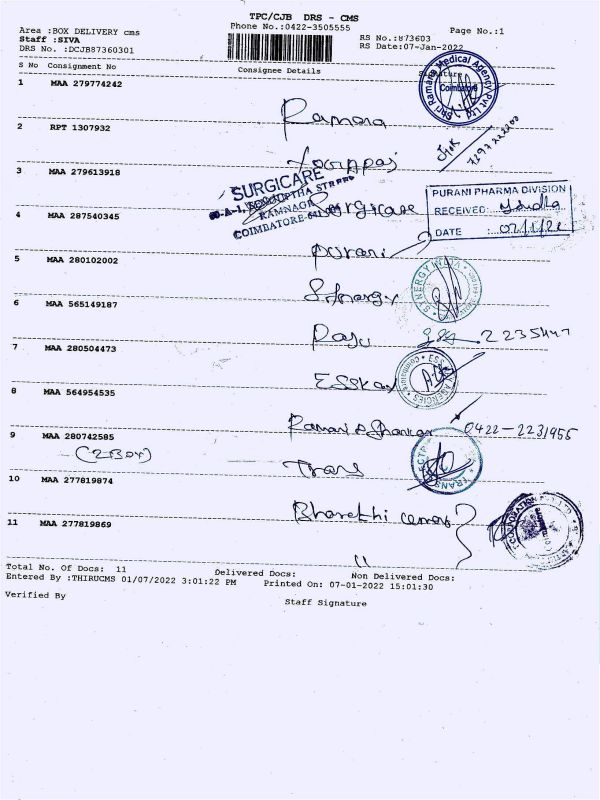 TPC/CJB DRS - CMS
Area :BOX DELIVERY cms
Phone No.:0422-3505555
Page No.:1
Staff :SIVA
RS No.:873603
DRS No. :DCJB87360301
RS Date:07-Jan-2022
S No Consignment No
Consignee Details
Signature
Shri Ramana Medical Agency Pvt Ltd
Coimbatore
1 MAA 279774242
Ramana
2 RPT 1307932
3 MAA 279613918
SURGICARE
RAMNAGAR
COIMBATORE-641
Surgicare
PURANI PHARMA DIVISION
RECEIVED:
DATE :
4 MAA 287540345
Purani
5 MAA 280102002
Synergy
SYNERGY INDIA
6 MAA 565149187
Raju
2235447
7 MAA 280504473
Esskay
ESSKAY AGENCIES
8 MAA 564954535
Ramani & Shankar 0422-2231955
9 MAA 280742585
(2 Box)
Trans
10 MAA 277819874
Bharathi cemas
11 MAA 277819869
11
Total No. Of Docs: 11
Delivered Docs:
Non Delivered Docs:
Entered By :THIRUCMS 01/07/2022 3:01:22 PM
Printed On: 07-01-2022 15:01:30
Verified By
Staff Signature